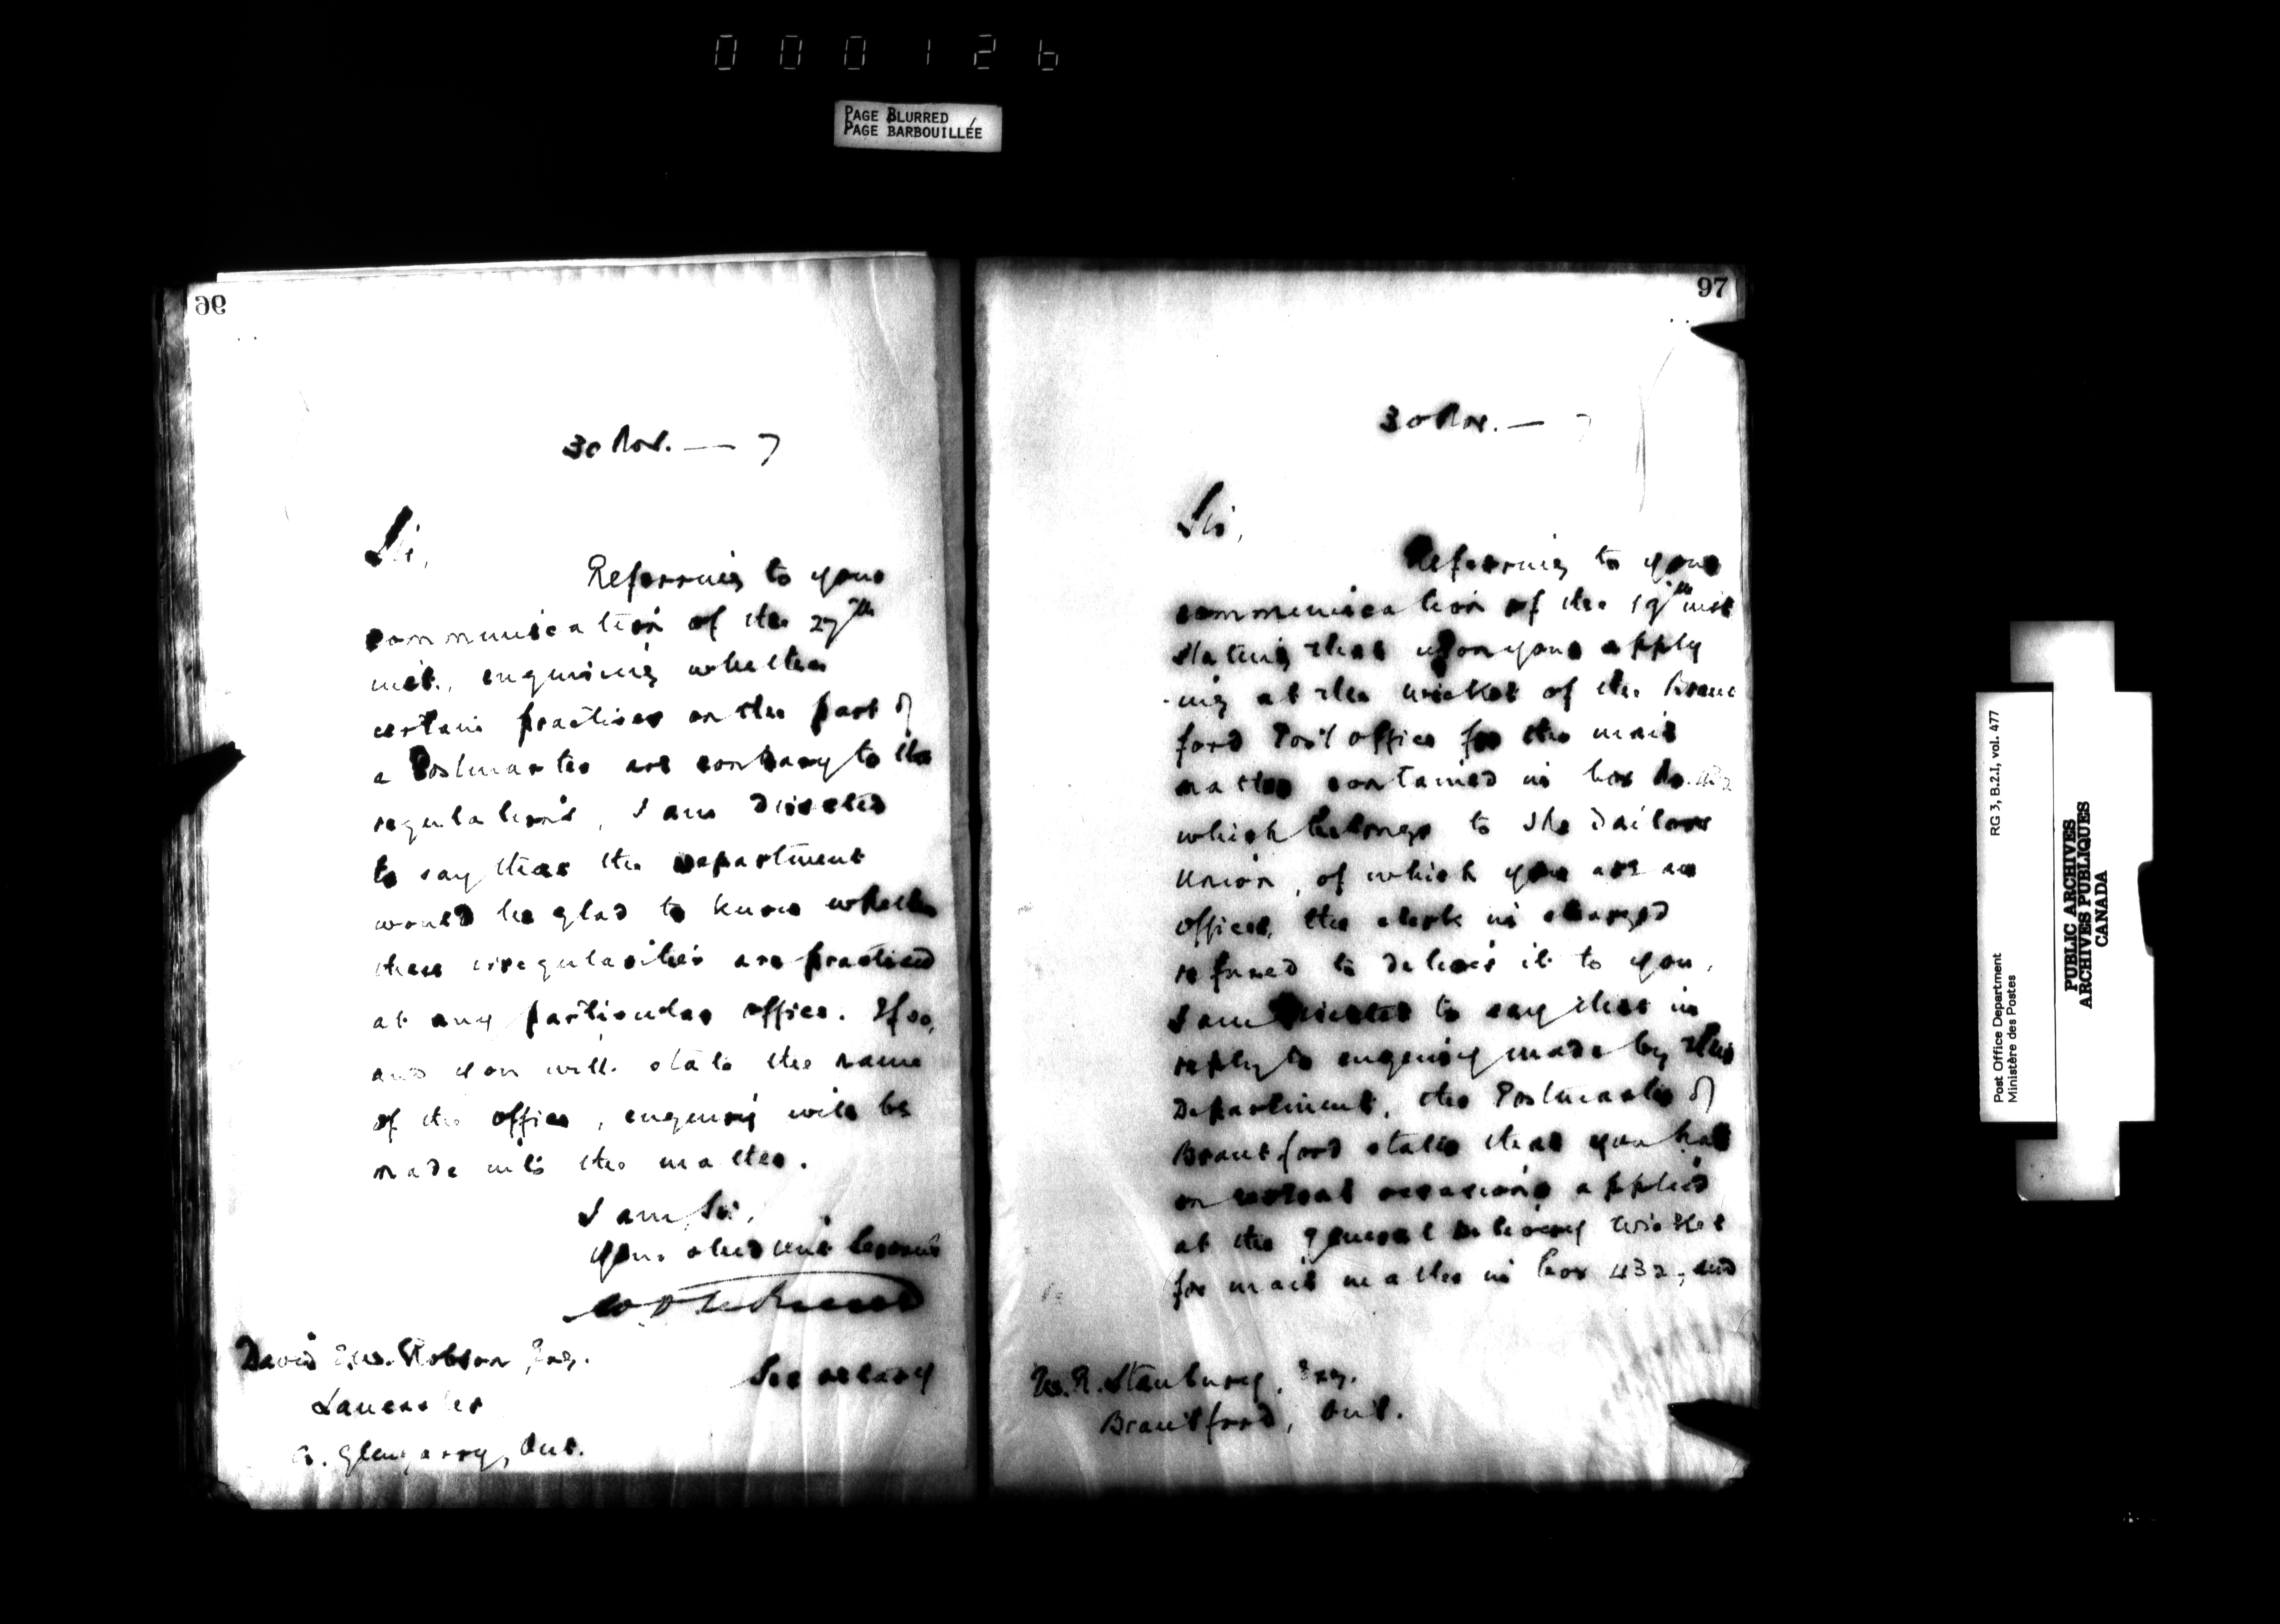 000126
PAGE BLURRED
PAGE BARBOUILLÉE
96
30 Nov. — 7
Sir,
Referring to your
communication of the 27th
inst., enquiring whether
certain practises on the part of
a Postmaster are contrary to the
regulations, I am directed
to say that the Department
would be glad to know whether
these irregularities are practised
at any particular office. If so,
and you will state the name
of the office, enquiry will be
made into the matter.
I am, Sir,
Your obedient servant
Secretary
David Robson, Esq.
Lancaster
Co. Glengarry, Ont.
97
30 Nov. — 7
Sir,
Referring to your
communication of the 19th inst
stating that upon your apply
-ing at the wicket of the Brant
ford Post office for the mail
matter contained in box No. 432
which belongs to the Tailors
Union, of which you are an
officer, the clerk in charged
refused to deliver it to you,
I am directed to say that in
reply to enquiry made by this
Department, the Postmaster of
Brantford states that you had
on several occasions applied
at the general delivery wicket
for mail matter in box 432, and
R. Stanbury, Esq.
Brantford, Ont.
Post Office Department
Ministère des Postes
RG 3, B.2.I, vol. 477
PUBLIC ARCHIVES
ARCHIVES PUBLIQUES
CANADA